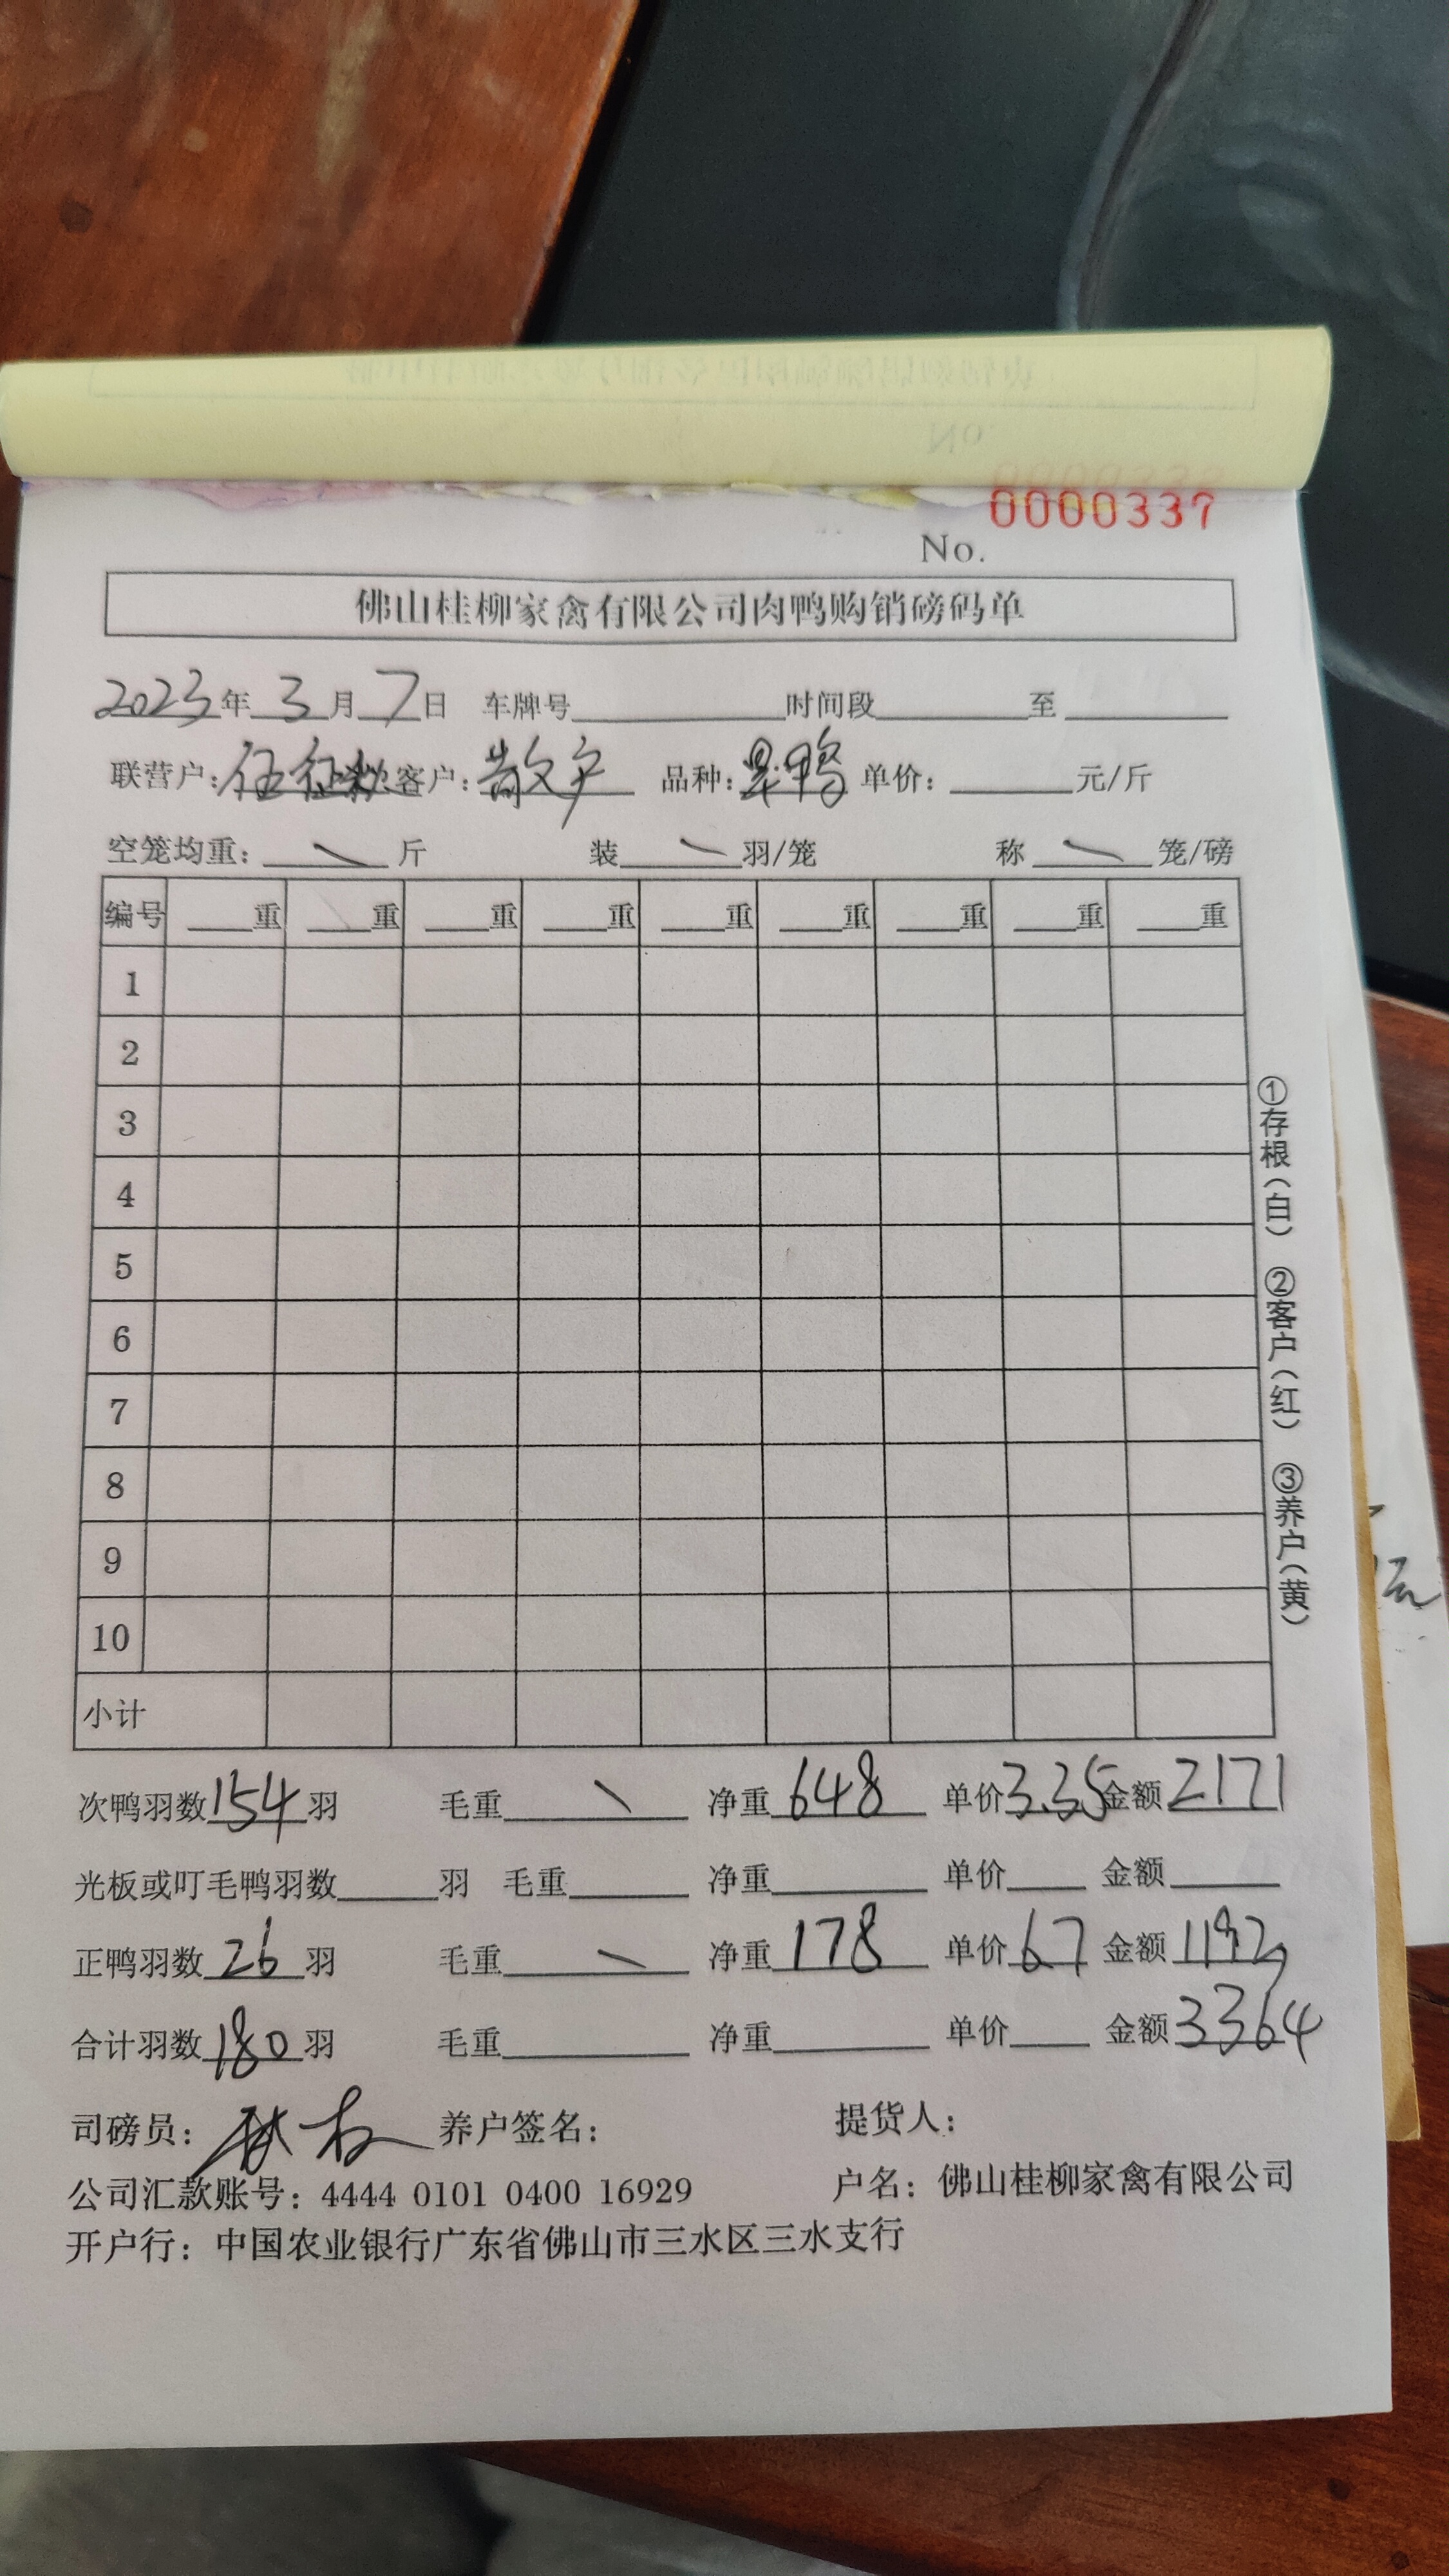 0000337
No.
佛山桂柳家禽有限公司肉鸭购销磅码单
2023年 3月 7日 车牌号 时间段 至
联营户：伍 客户：散户 品种：鸭 单价： 元/斤
空笼均重： 斤 装 羽/笼 称 笼/磅
编号 重 重 重 重 重 重 重 重 重
1
2
3
4
5
6
7
8
9
10
小计
①存根（白） ②客户（红） ③养户（黄）
次鸭羽数154羽 毛重 净重648 单价3.35 金额2171
光板或叮毛鸭羽数 羽 毛重 净重 单价 金额
正鸭羽数26羽 毛重 净重178 单价6.7 金额1192
合计羽数180羽 毛重 净重 单价 金额3364
司磅员： 养户签名： 提货人：
公司汇款账号：4444 0101 0400 16929 户名：佛山桂柳家禽有限公司
开户行：中国农业银行广东省佛山市三水区三水支行